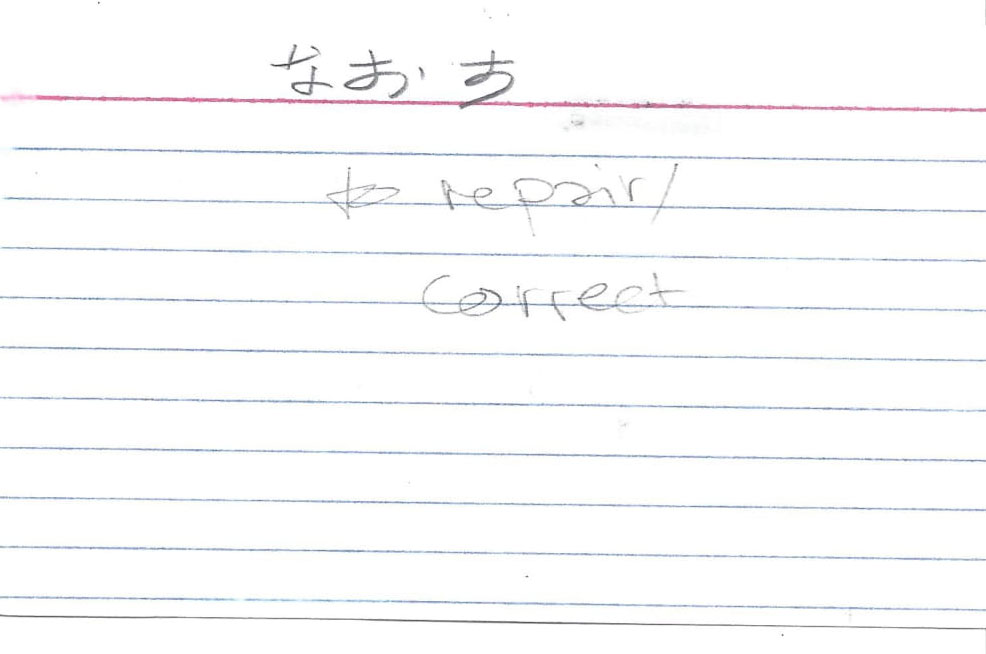 なおす
to repair/
correct